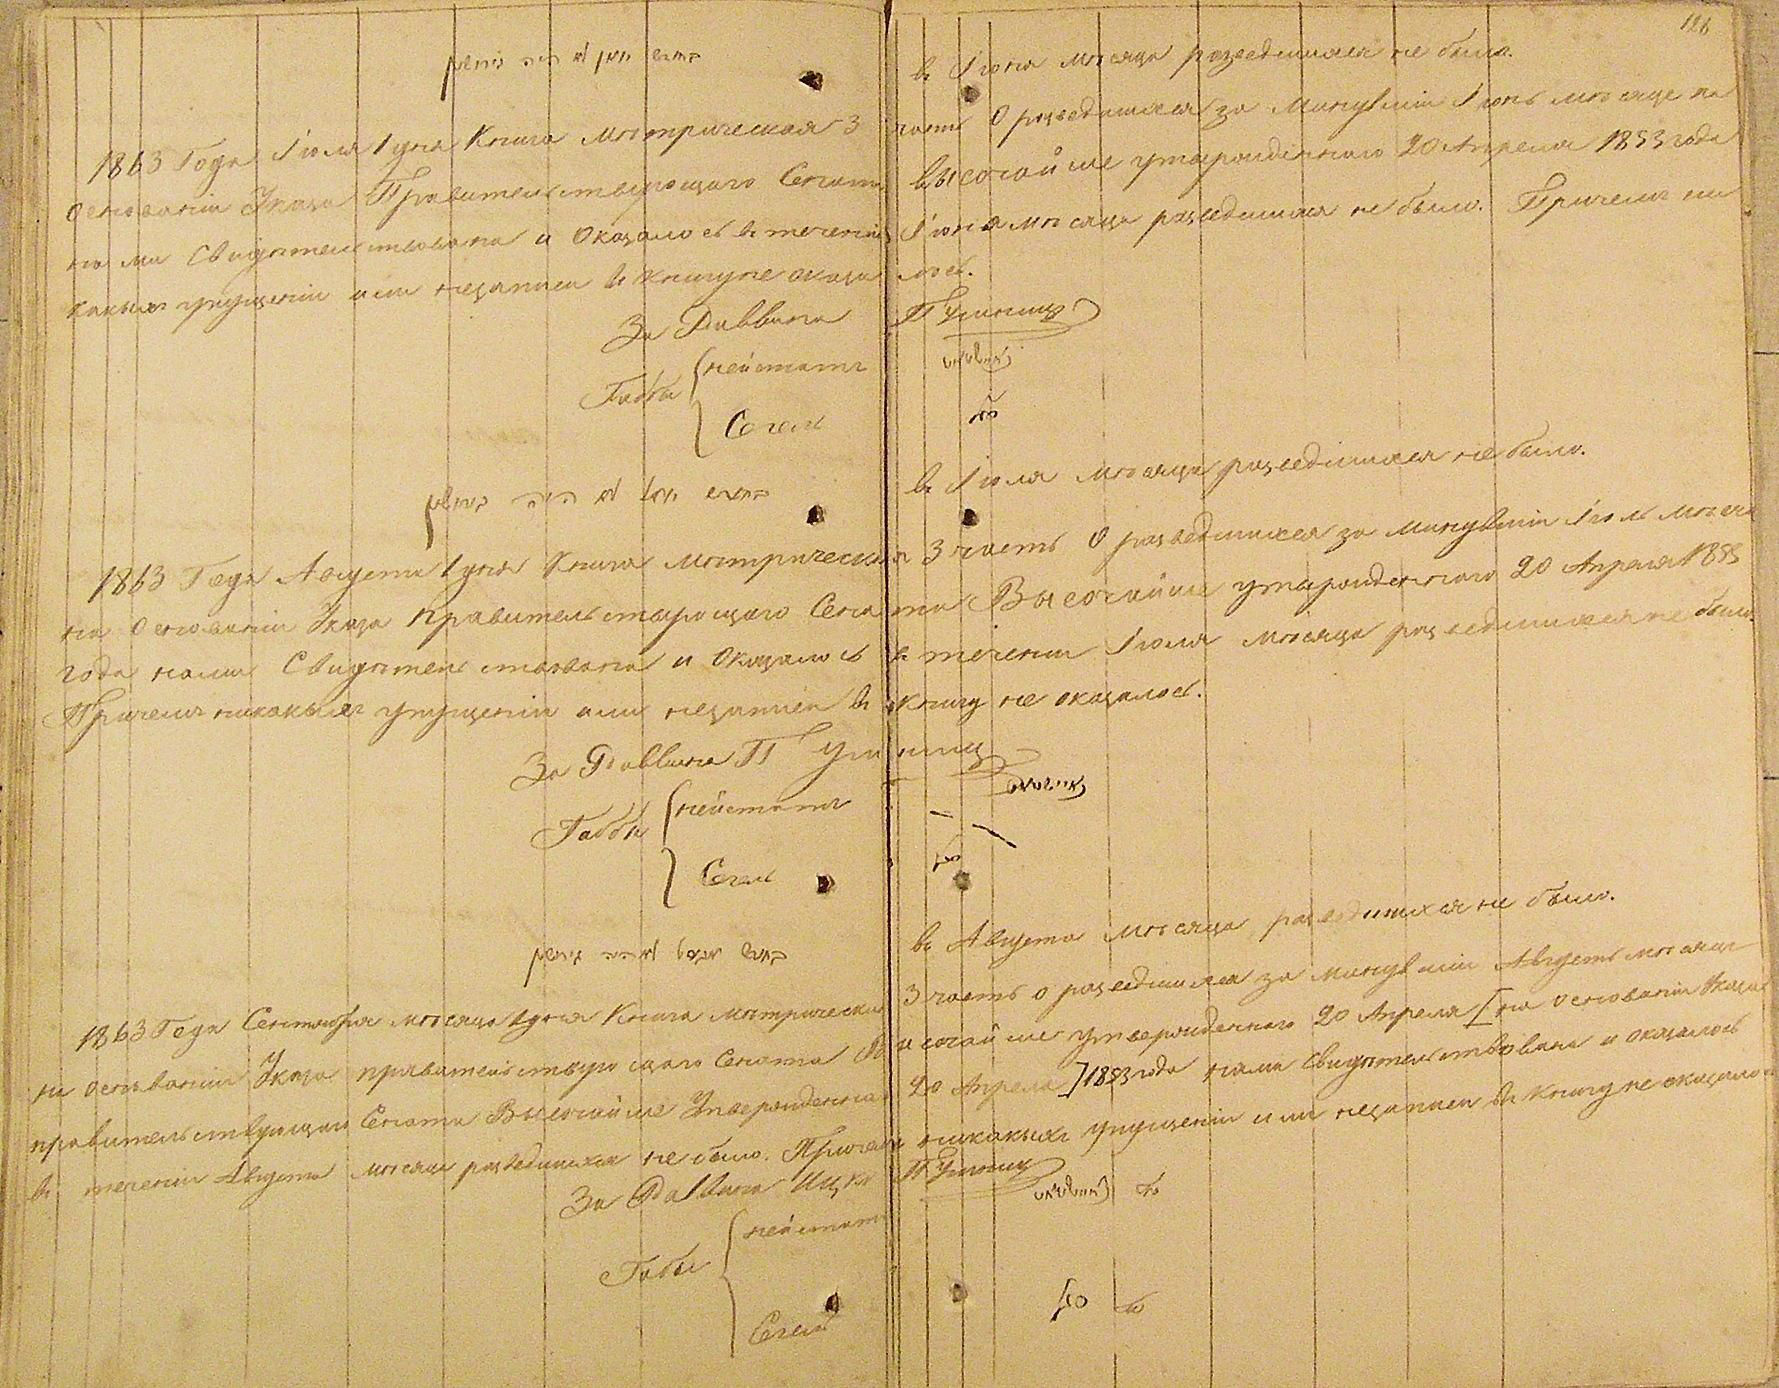 126
בחודש יואן לא היה גירושין
в Іюня мѣсяца разведшихся не было.
1863 Года Іюля 1 дня Книга метрическая 3 часть О разведшихся за минувшій Іюнь мѣсяцъ на
основаніи Указа Правительствующаго Сената Высочайше утвержденнаго 20 Апреля 1853 года
нами Свидѣтельствована и Оказалось в теченіи Іюня мѣсяца разведшихся не было. Причемъ ни
какыхъ упущеніи или незаписи в книгу не оказалось.
За Раввина П
Габбы нейштатъ
Сегель
בחודש יואל לא היה גירושין
в Іюля мѣсяца разведшихся не было.
1863 Года Августа 1 дня Книга метрическая 3 часть О разведшихся за минувшіи Іюль мѣсяца
на основаніи Указа Правительствующаго Сената Высочайше утвержденнаго 20 Апреля 1853
года нами Свидѣтельствована и Оказалось в теченіи Іюля мѣсяца разведшихся не было.
Причемъ никакыхъ упущеніи или незаписи в книгу не оказалось.
За Раввина П
Габбы нейштатъ
Сегаль
בחודש אווגוסט לא היה גירושין
в Августа мѣсяца разведшихся не было.
1863 Года Сентября мѣсяца 1 дня Книга метрическая 3 часть о разведшихся за минувшіи Августъ мѣсяцъ
на основаніи Указа правительствующаго Сената Высочайше утвержденнаго 20 Апреля [на основаніи Указа
правительствующаго Сената Высочайше Утвержденнаго 20 Апреля] 1853 года нами свидѣтельствована и оказалось
в теченіи Августа мѣсяца разведшихся не было. Причемъ никакыхъ упущеніи или незаписи в книгу не оказалось
За Раввина Ицка П
Габбы нейштатъ
Сегель